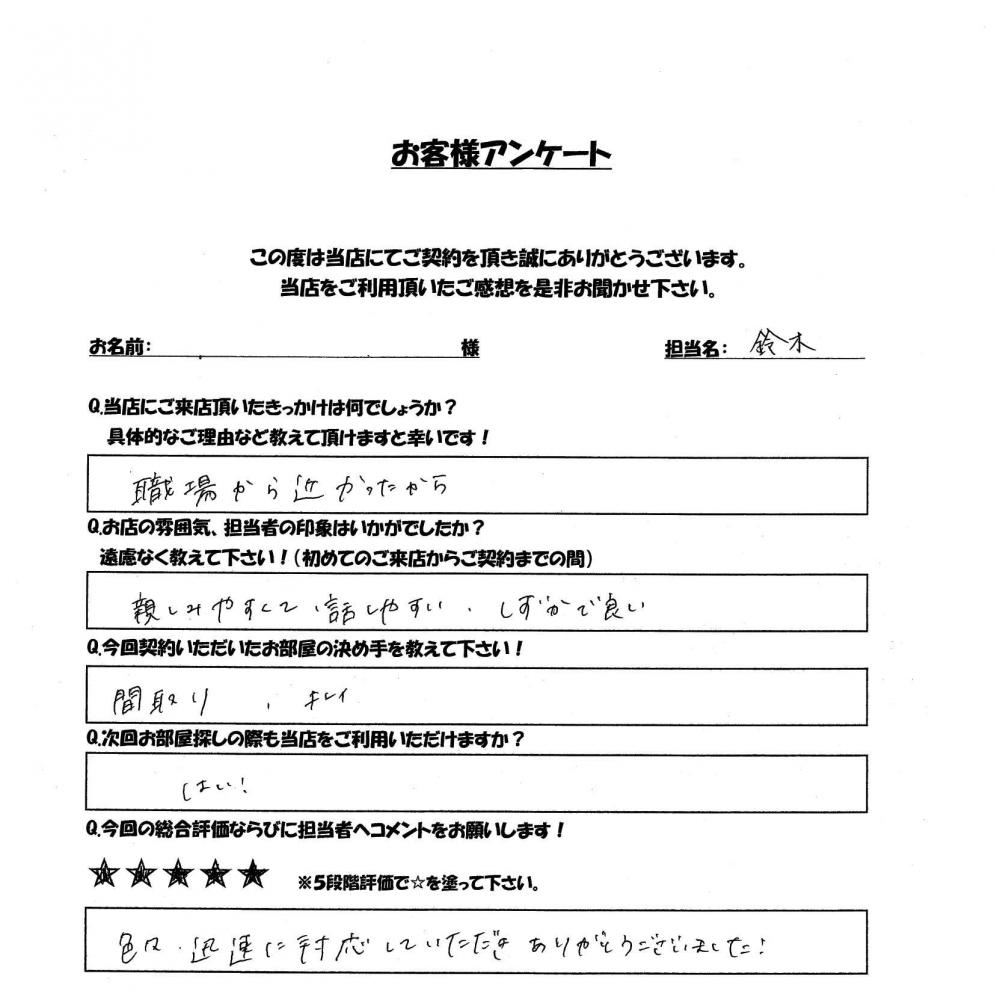 お客様アンケート
この度は当店にてご契約を頂き誠にありがとうございます。
当店をご利用頂いたご感想を是非お聞かせ下さい。
お名前: 様 担当名: 鈴木
Q.当店にご来店頂いたきっかけは何でしょうか？
具体的なご理由など教えて頂けますと幸いです！
職場から近かったから
Q.お店の雰囲気、担当者の印象はいかがでしたか？
遠慮なく教えて下さい！（初めてのご来店からご契約までの間）
親しみやすくて、話しやすい、しずかで良い
Q.今回契約いただいたお部屋の決め手を教えて下さい！
間取り、キレイ
Q.次回お部屋探しの際も当店をご利用いただけますか？
はい！
Q.今回の総合評価ならびに担当者へコメントをお願いします！
★★★★★ ※5段階評価で☆を塗って下さい。
色々、迅速に対応していただき ありがとうございました！